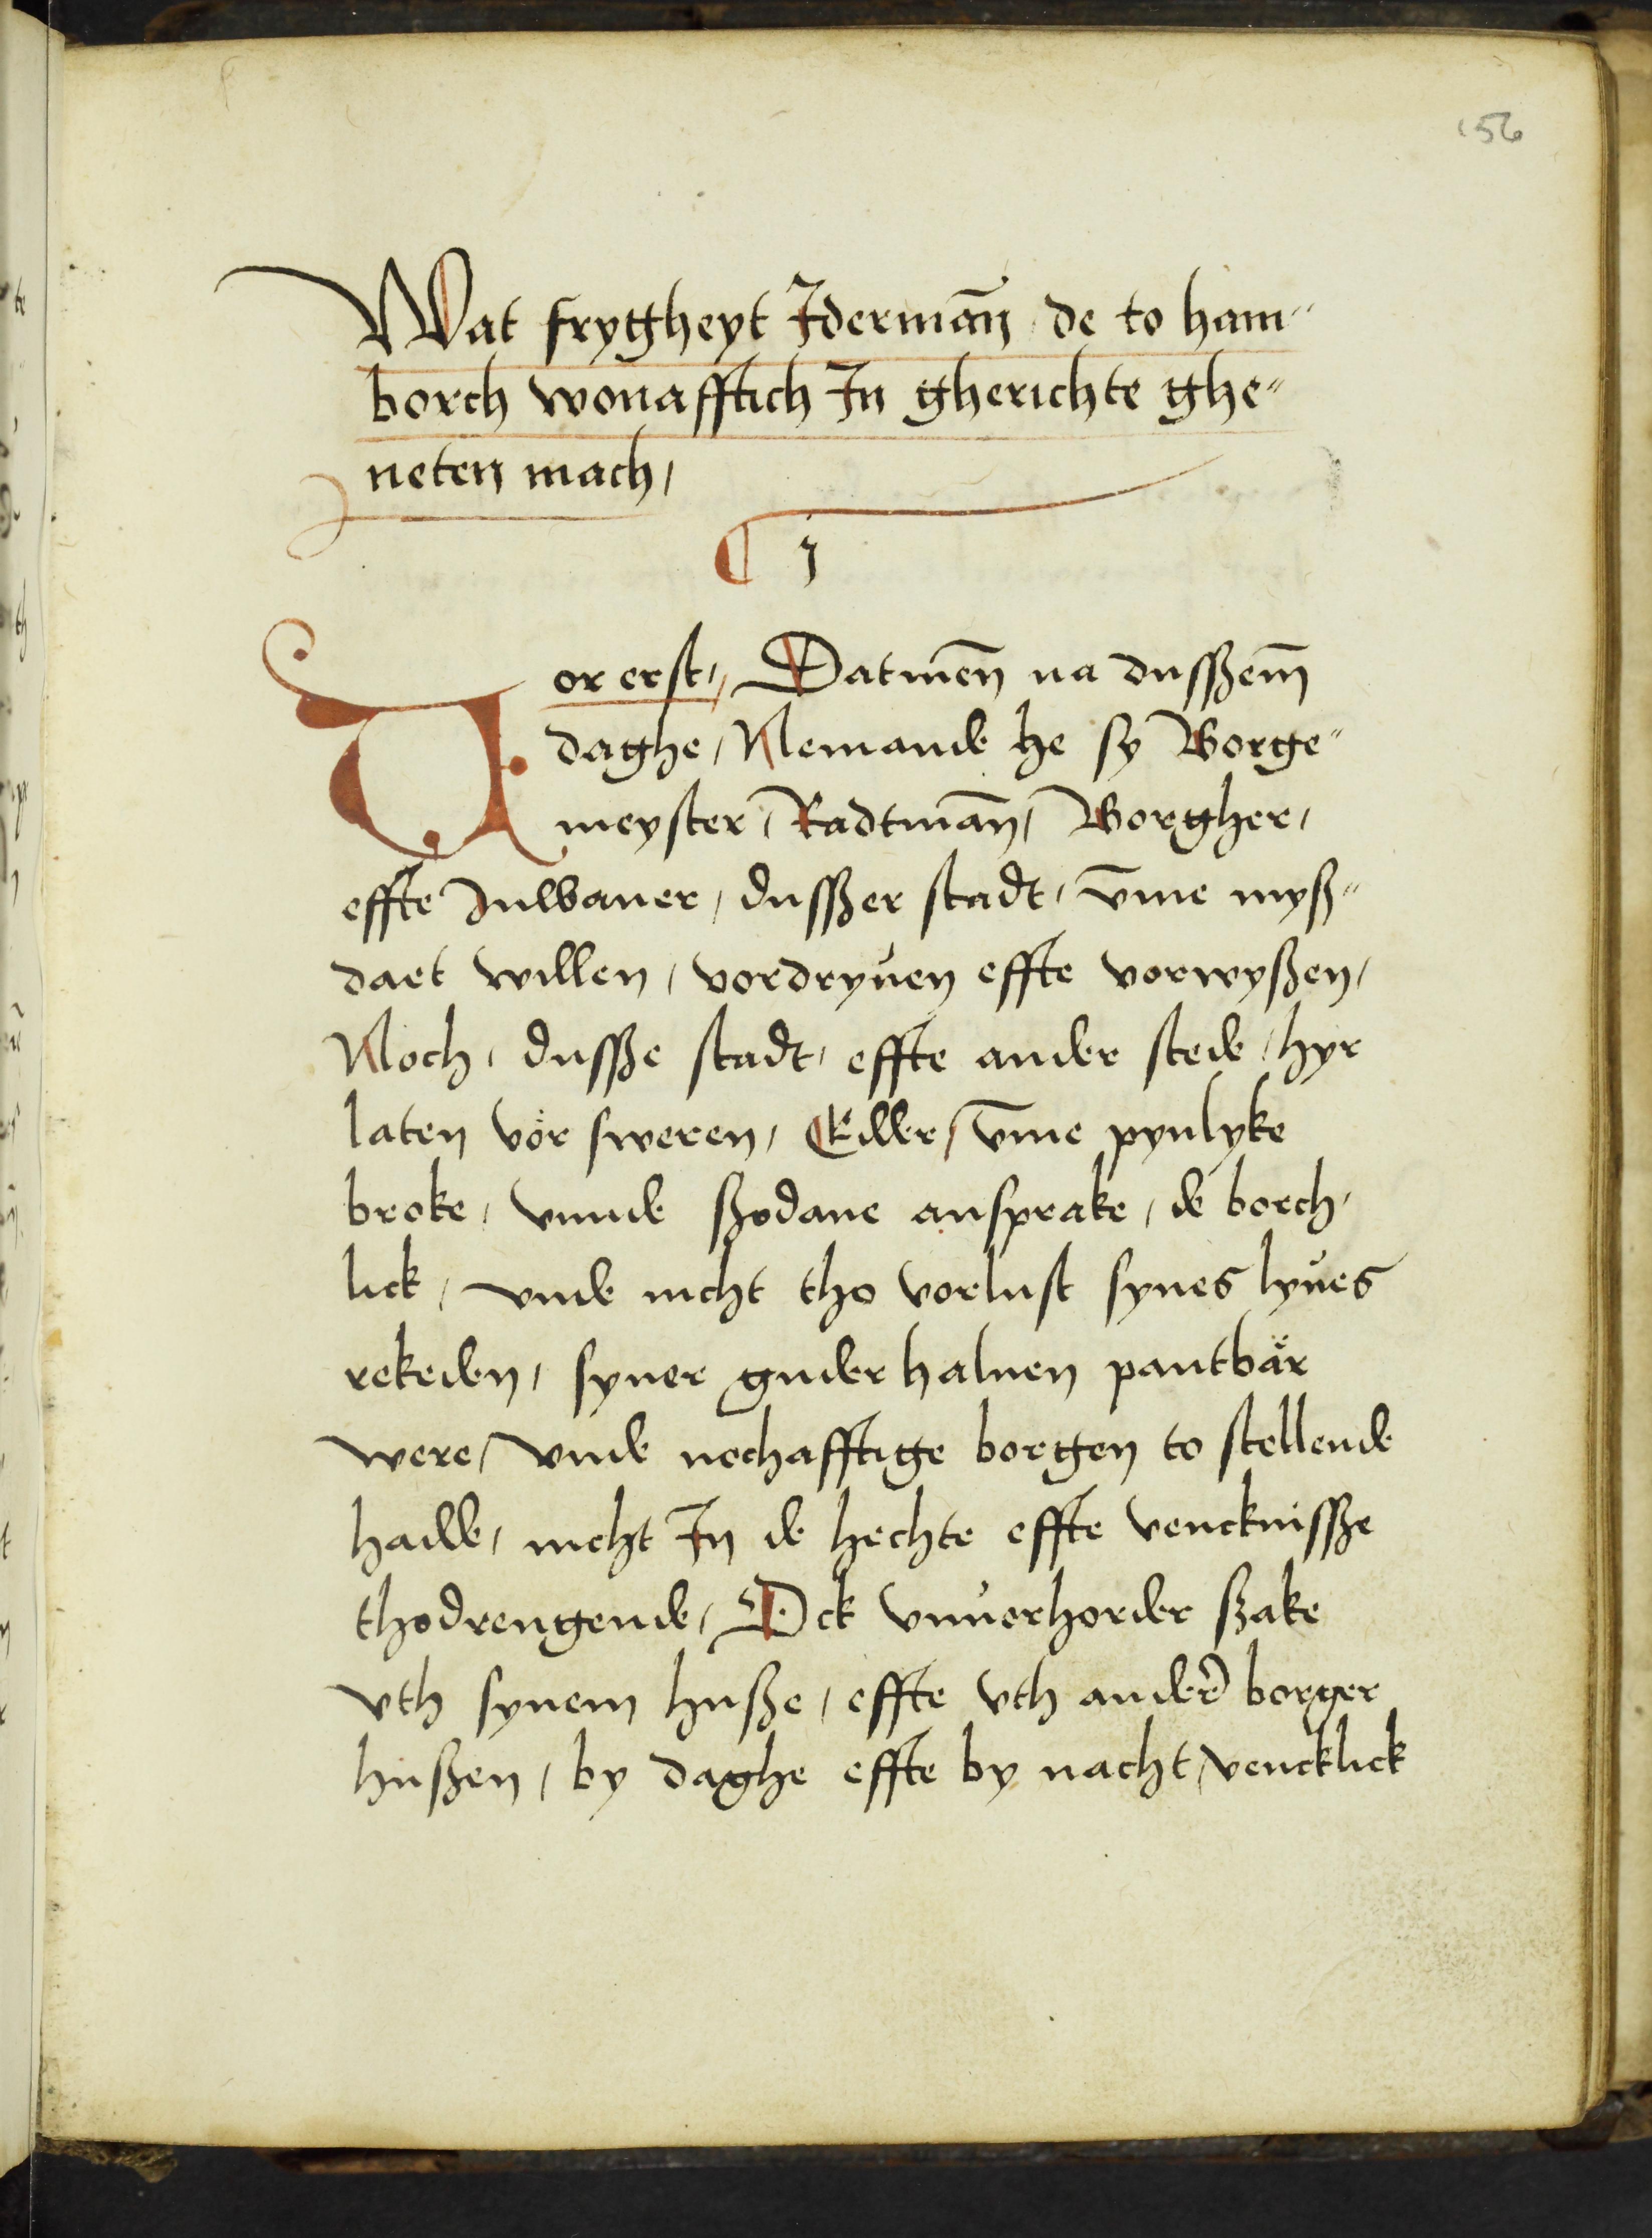 156
Wat frygheyt Jdermā̄n / de to ham"
borch wonafftich Jn gherichte ghe"
neten mach /
¶ j
Vor erst / Datmēn na dusßem̄
daghe / Nemande he sy Borge"
meyster / Radtmān / Borgher /
effte Inwaner / dusßer stadt / v̄me myß"
daet willen / vordryuen effte vorwyßen /
Noch / dusße stadt / effte ander stede / hyr
laten vör sweren / Edder / v̄me pynlyke
broke / vnnde ßodane ansprake / de borch /
lick / vnde nicht tho vorlust synes lyues
rekeden / syner guder haluen pantbär
were / vnde nochafftige borgen to stellende
hadde / nicht Jn de hechte effte vencknisße
thodrengende / Ock vnuorhorder ßake
vth synem huße / effte vth ander̄ borger
hußen / by daghe effte by nacht / vencklick